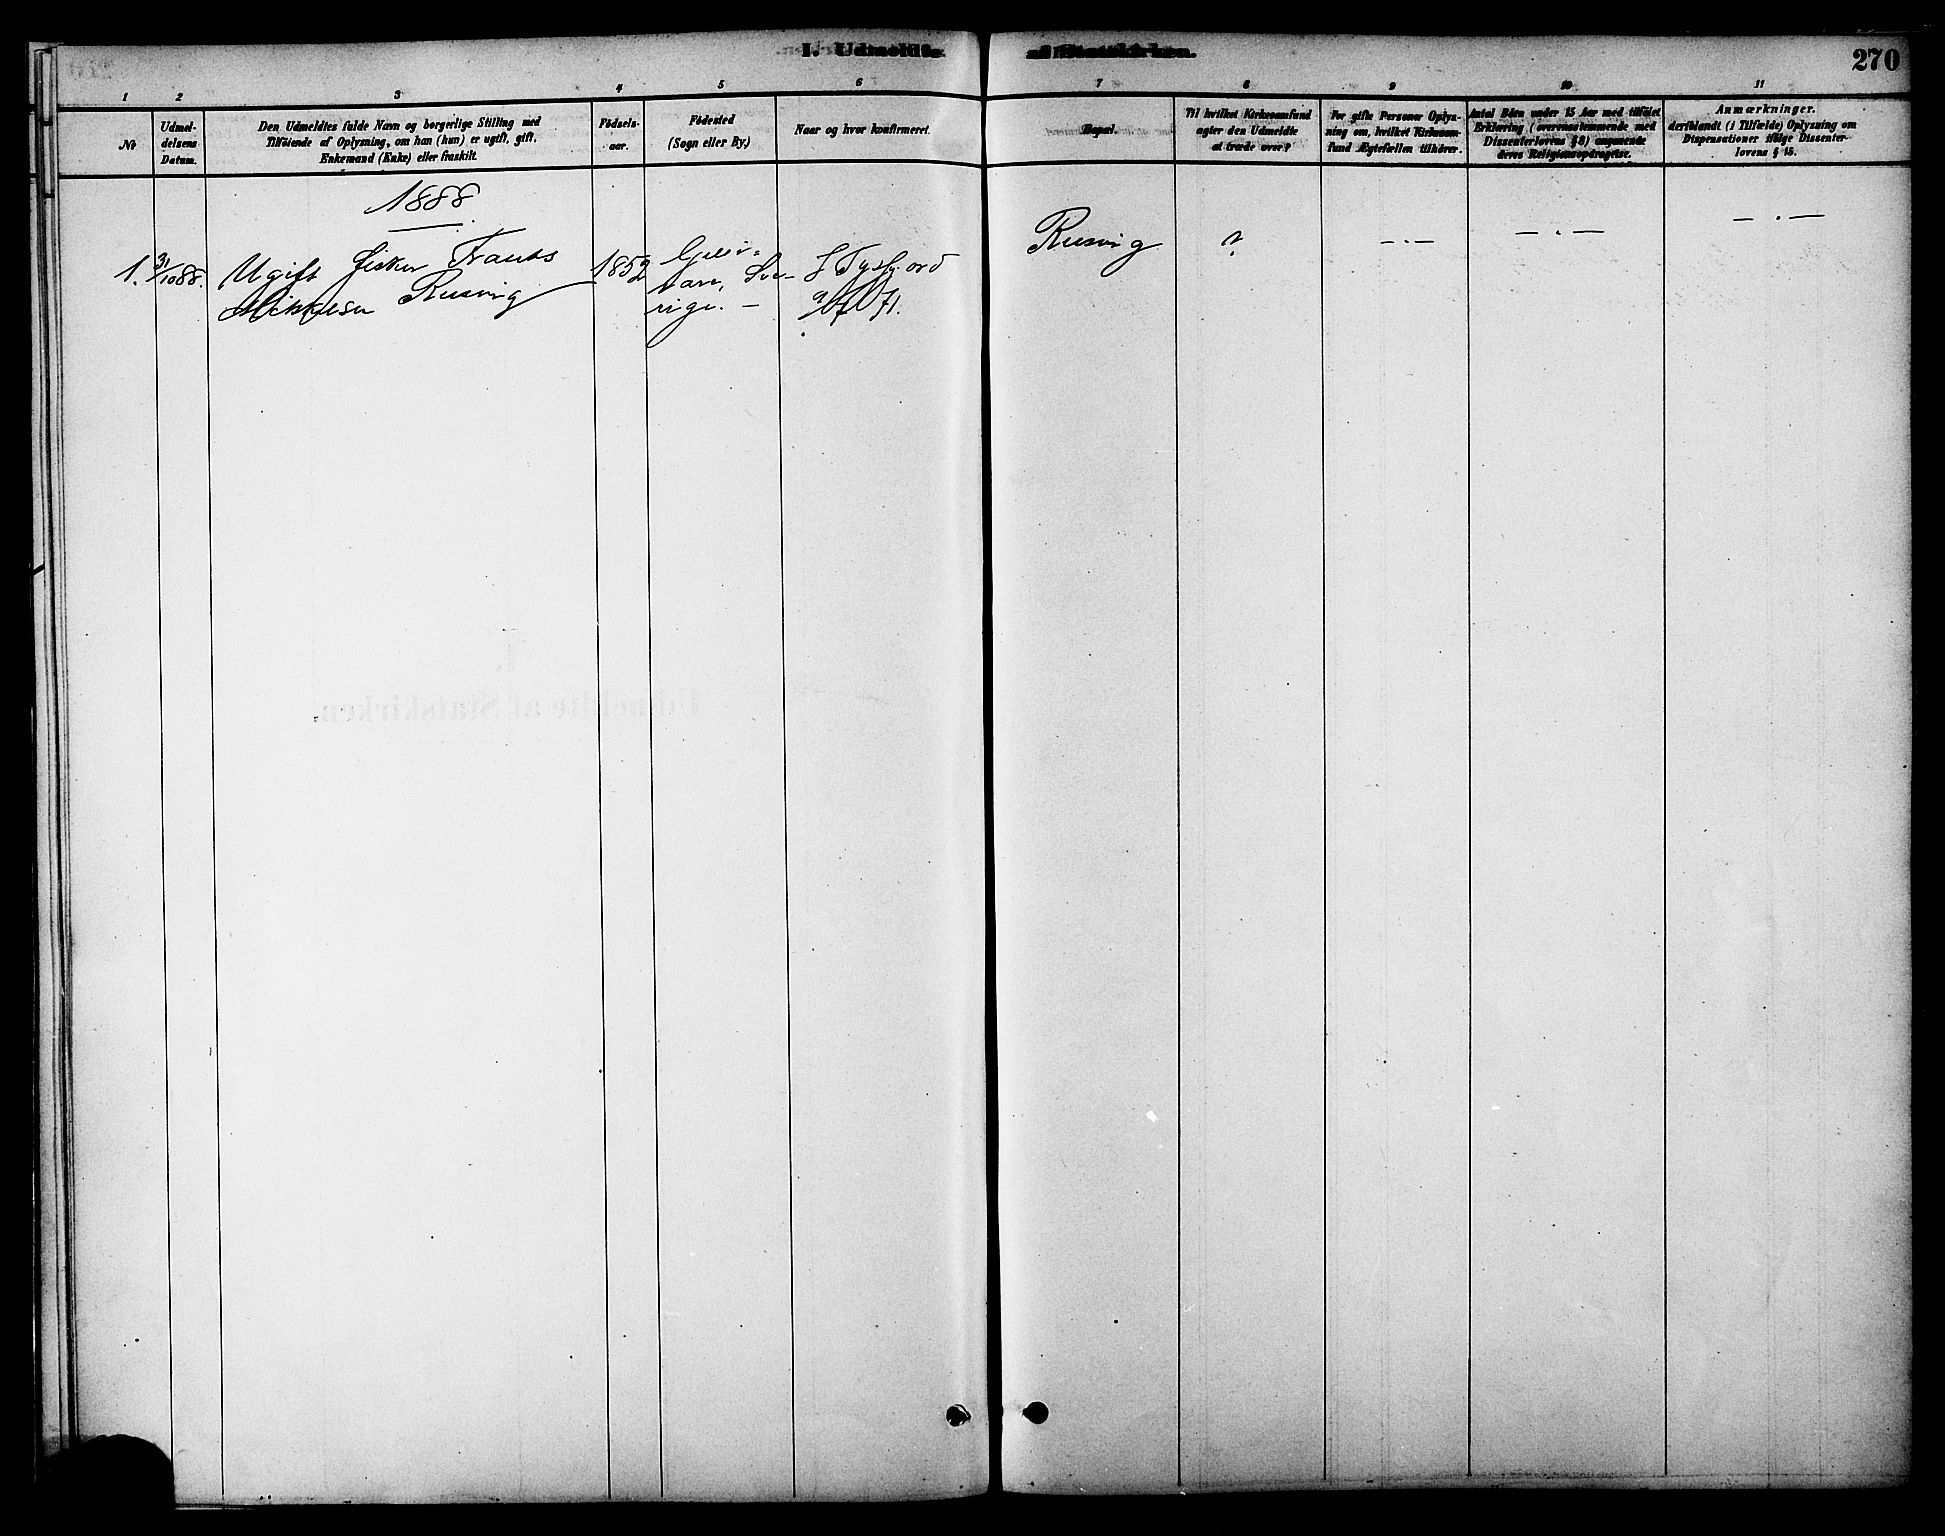 I. Udmeldte af Statskirken.
270
1 2 3 4 5 6 7 8 9 10 11
No
Udmel-
delsens
Datum.
Den Udmeldtes fulde Navn og borgerlige Stilling med
Tilföiende af Oplysning, om han (hun) er ugift, gift,
Enkemand (Enke) eller fraskilt.
Födsels-
aar.
Födested
(Sogn eller By.)
Naar og hvor konfirmeret.
Bopæl.
Til hvilket Kirkesamfund
agter den Udmeldte
at træde over?
For gifte Personer Oplys-
ning om, hvilket Kirkesam-
fund Ægtefællen tilhörer.
Antal Börn under 15 Aar med tilföiet
Erklæring (overensstemmende med
Dissenterlovens § 8) angaaende
deres Religionsopdragelse.
Anmærkninger.
deriblandt (i Tilfælde) Oplysning om
Dispensationer ifölge Dissenter-
lovens § 15.
1888
1. 31/10 88.
Ugift Fisker Frants
Mikkelsen Rusvig
1852
Gelli-
vare, Sve-
rige. –
I Tysfjord
9/7 71.
Rusvig
?
– . –
– . –
– . –